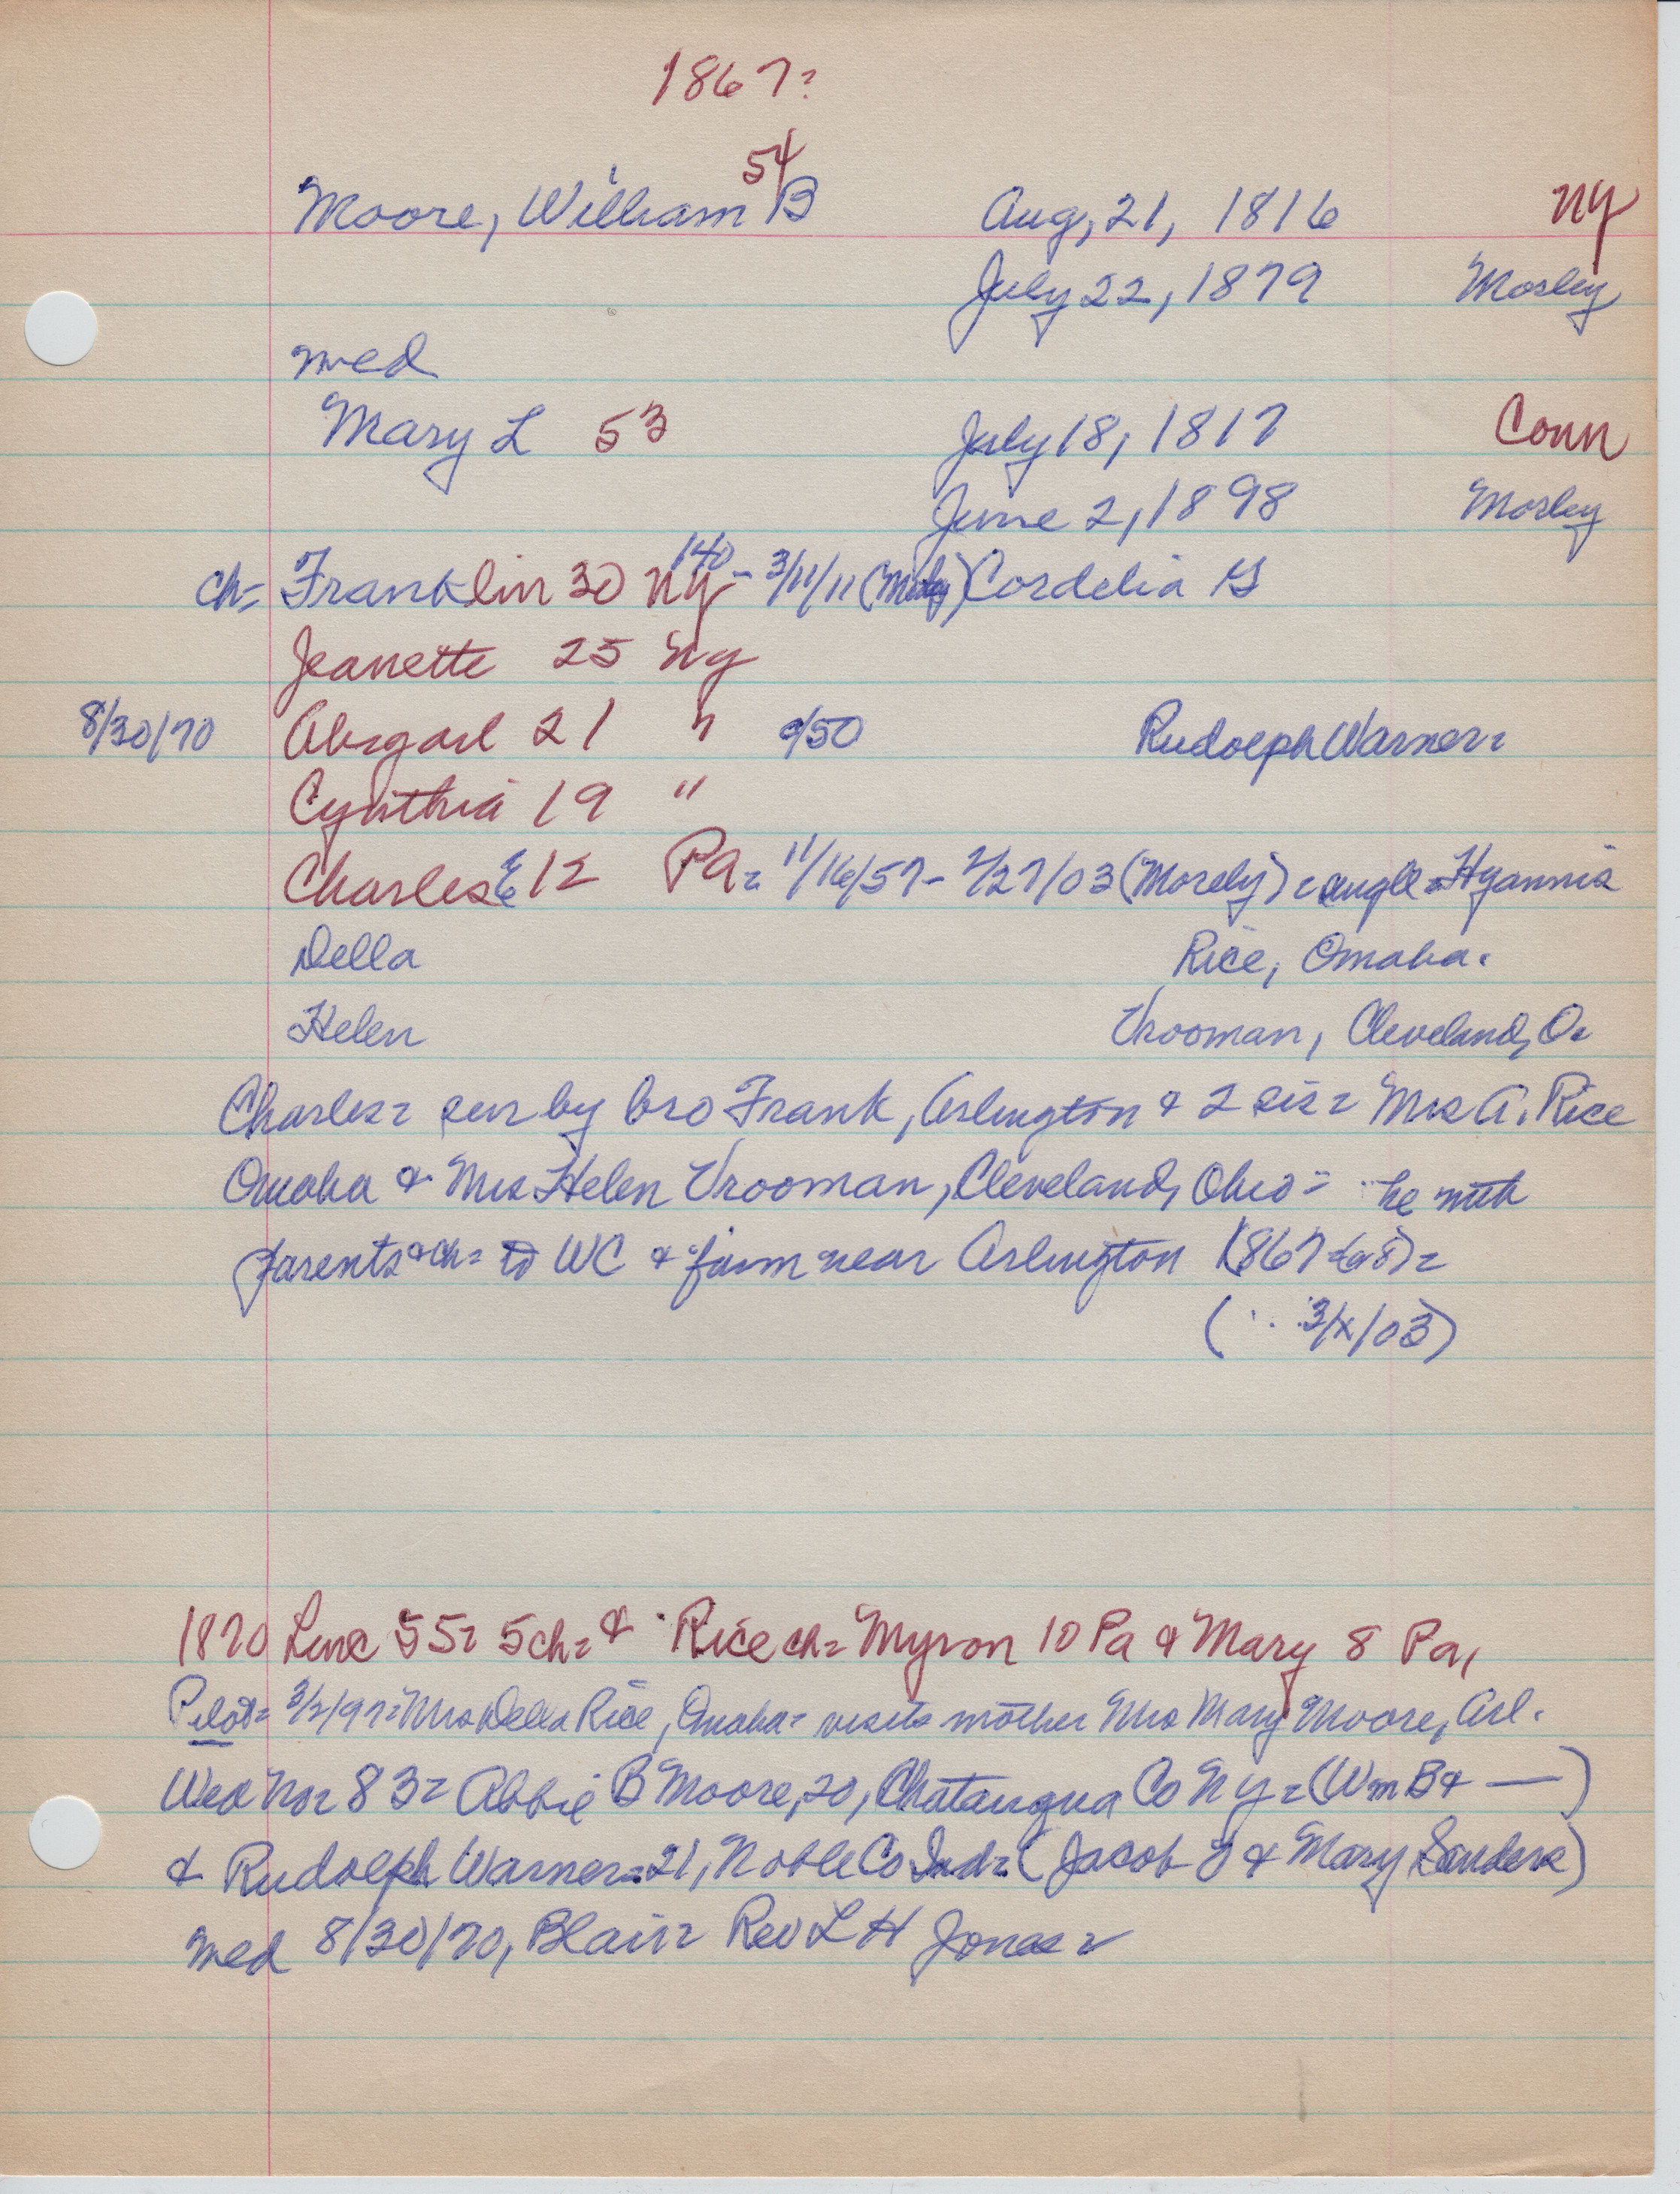 1867?
54
Moore, William B Aug, 21, 1816 NY
July 22, 1879 Mosley
med
Mary L 53 July 18, 1817 Conn
June 2, 1898 Mosley
ch= Franklin 30 NY 1840 - 3/11/11 ( ) Cordelia G
Jeanette 25 Ny
8/30/70 Abigail 21 " 9/50 Rudolph Warner=
Cynthia 19 "
Charles E 12 Pa= 11/16/57 - 2/27/03 (Morely) = single = Hyannis
Della Rice, Omaha.
Helen Vrooman, Cleveland, O=
Charles= sur by bro Frank, Arlington & 2 sis= Mrs A. Rice
Omaha & Mrs Helen Vrooman, Cleveland, Ohio= he with
parents & ch= to WC & farm near Arlington (1867 =
( 3/x/03)
1870 Line 55= 5ch= & Rice ch= Myron 10 Pa & Mary 8 Pa,
Pilot= 3/2/97= Mrs Della Rice, Omaha= visits mother Mrs Mary Moore, Arl.
Wed No= 83= Abbie B Moore, 20, Chatauqua Co N Y= (Wm B & — )
& Rudolph Warner= 21, Noble Co Ind= (Jacob & Mary Sanders)
med 8/30/70, Blair= Rev L H Jones=